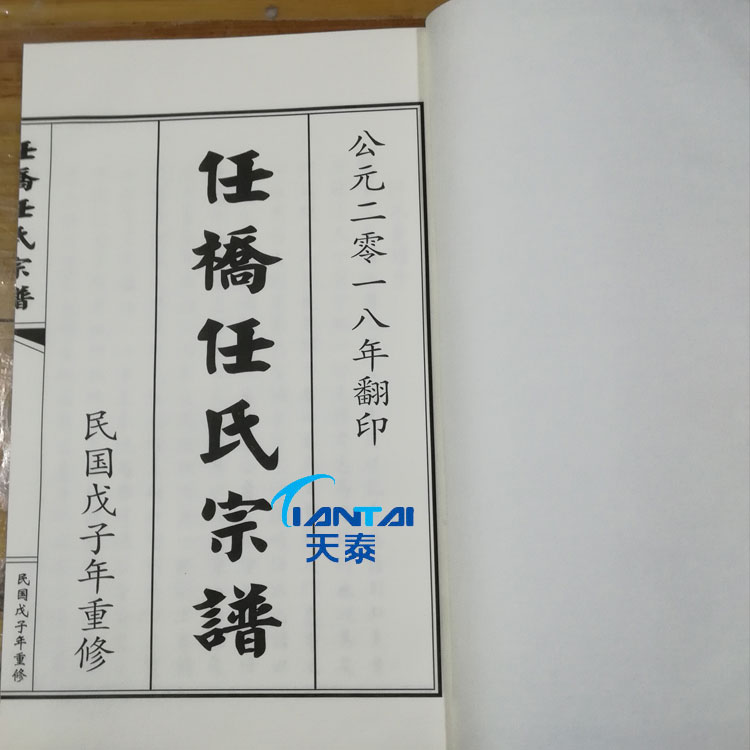 公元二零一八年翻印
任橋任氏宗譜
民国戊子年重修
任橋任氏宗譜
民国戊子年重修
TIANTAI
天泰